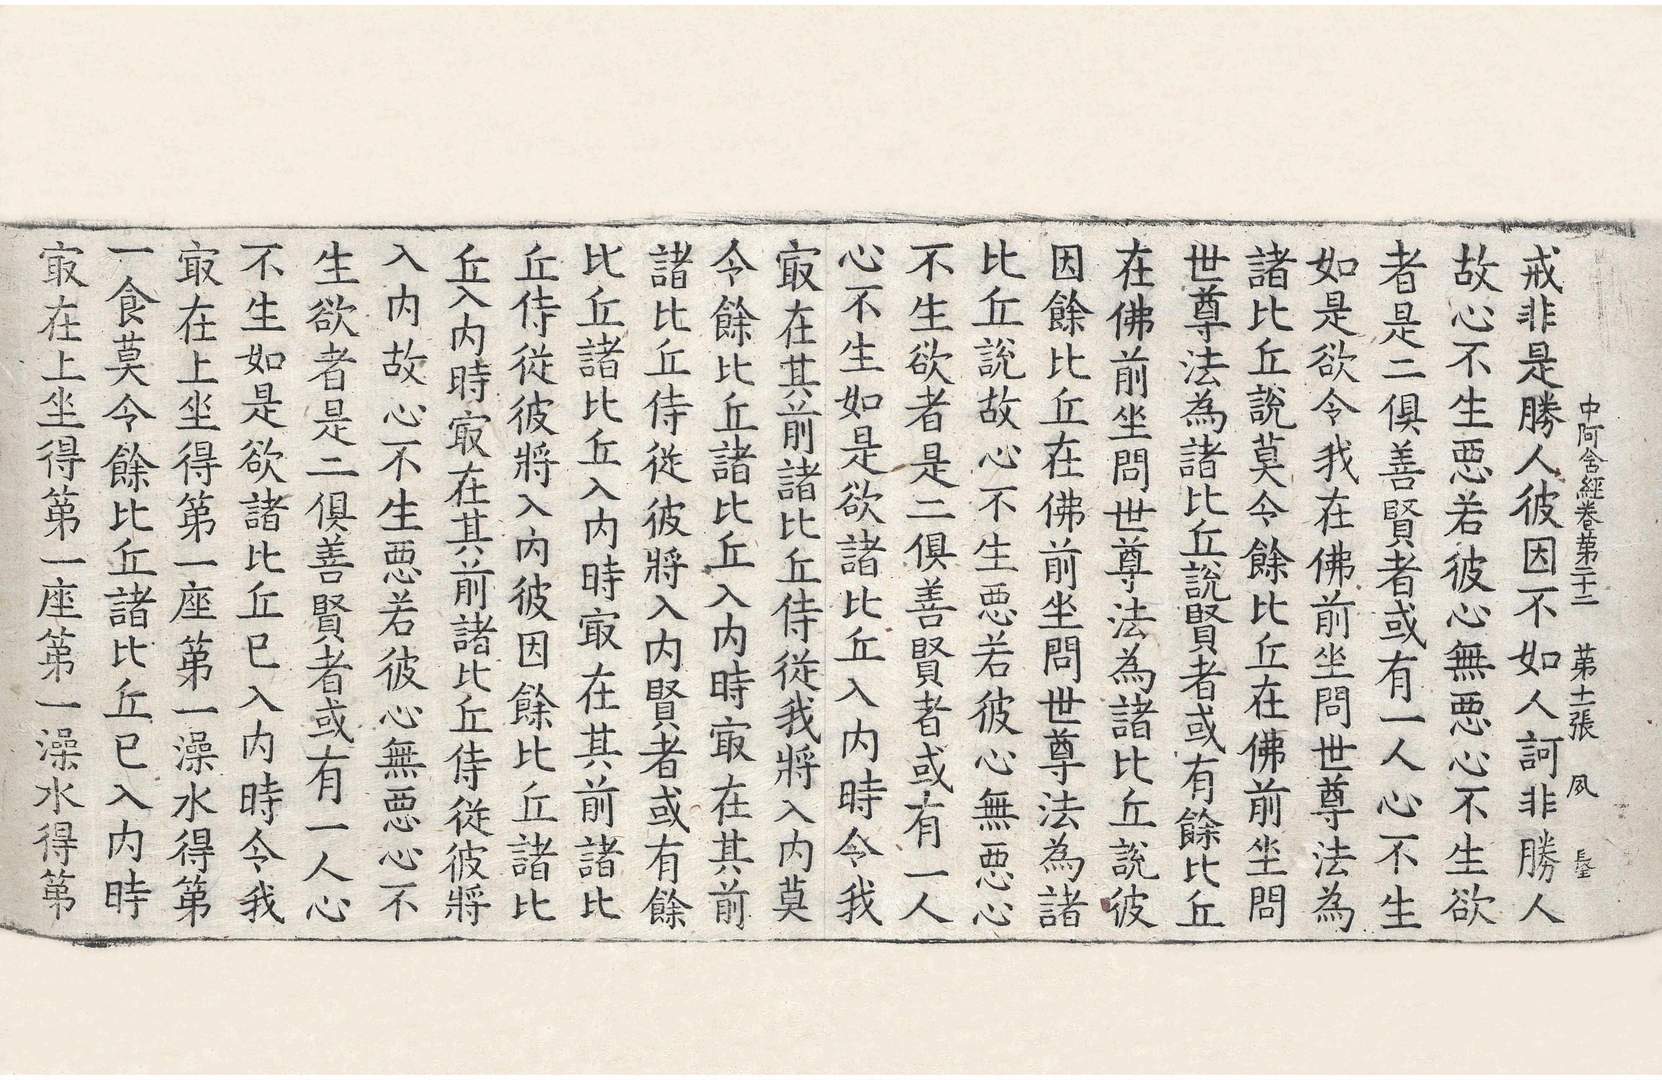 中阿含經卷第二十二 第十一張 夙
戒非是勝人彼因不如人訶非勝人
故心不生悪若彼心無悪心不生欲
者是二俱善賢者或有一人心不生
如是欲令我在佛前坐問世尊法為
諸比丘說莫令餘比丘在佛前坐問
世尊法為諸比丘說賢者或有餘比丘
在佛前坐問世尊法為諸比丘說彼
因餘比丘在佛前坐問世尊法為諸
比丘說故心不生悪若彼心無悪心
不生欲者是二俱善賢者或有一人
心不生如是欲諸比丘入内時令我
㝡在其前諸比丘侍從我將入内莫
令餘比丘諸比丘入内時㝡在其前
諸比丘侍從彼將入内賢者或有餘
比丘諸比丘入内時㝡在其前諸比
丘侍從彼將入内彼因餘比丘諸比
丘入内時㝡在其前諸比丘侍從彼將
入内故心不生悪若彼心無悪心不
生欲者是二俱善賢者或有一人心
不生如是欲諸比丘已入内時令我
㝡在上坐得第一座第一澡水得第
一食莫令餘比丘諸比丘已入内時
㝡在上坐得第一座第一澡水得第